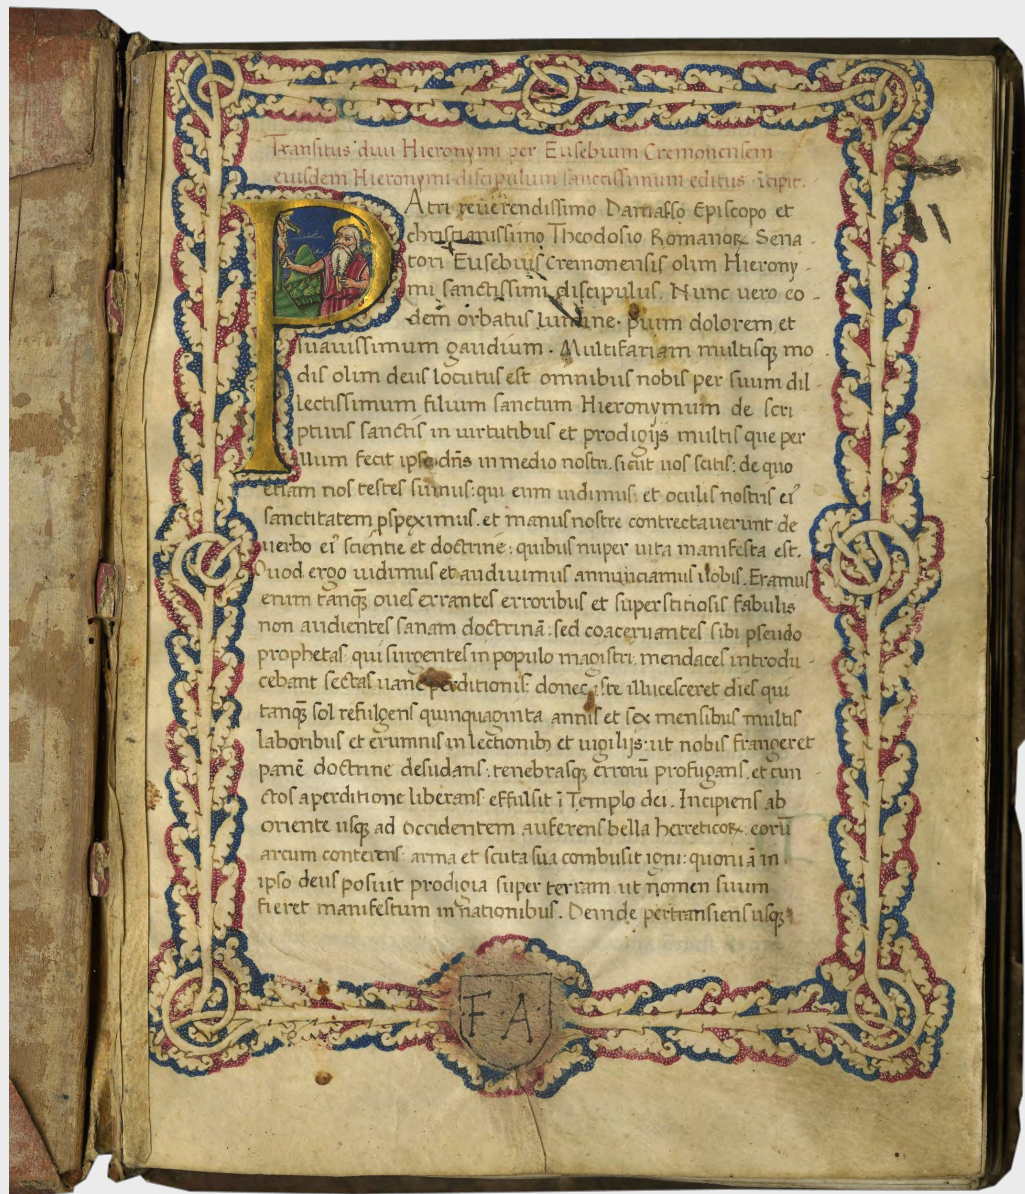 Transitus diui Hieronymi per Eusebium Cremonensem
eiusdem Hieronymi discipulum sanctissimum editus ĩcipit.
PAtri reuerendissimo Damasso Episcopo et
christianissimo Theodosio Romanoꝝ Sena-
tori Eusebius Cremonensis olim Hierony-
mi sanctissimi discipulus. Nunc uero eo-
dem orbatus lumine. pium dolorem et
suauissimum gaudium. Multifariam multisqꝫ mo
dis olim deus locutus est omnibus nobis per suum dil-
lectissimum filium sanctum Hieronymum de scri
pturis sanctis in uirtutibus et prodigijs multis que per
illum fecit ipse dñs in medio nostri. sicut uos scitis: de quo
etiam nos testes sumus: qui eum uidimus: et oculis nostris eiꝰ
sanctitatem ꝑspeximus. et manus nostre contrectauerunt de
uerbo eiꝰ scientie et doctrine: quibus nuper uita manifesta est.
Quod ergo uidimus et audiuimus annunciamus uobis. Eramus
enim tanqꝫ oues errantes erroribus et superstitiosis fabulis
non audientes sanam doctrinã: sed coaceruantes sibi pseudo
prophetas: qui surgentes in populo magistri mendaces introdu-
cebant sectas uane perditionis: donec iste illucesceret dies qui
tanqꝫ sol refulgens quinquaginta annis et sex mensibus multis
laboribus et erumnis in lectionibꝫ et uigilijs: ut nobis frangeret
panẽ doctrine desudans: tenebrasqꝫ errorũ profugans. et cun
ctos a perditione liberans effulsit ĩ Templo dei. Incipiens ab
oriente usqꝫ ad occidentem auferens bella herreticoꝝ: eorũ
arcum conterens: arma et scuta sua combusit igni: quoniã in
ipso deus posuit prodigia super terram ut nomen suum
fieret manifestum in nationibus. Deinde pertransiens usqꝫ
F·A·